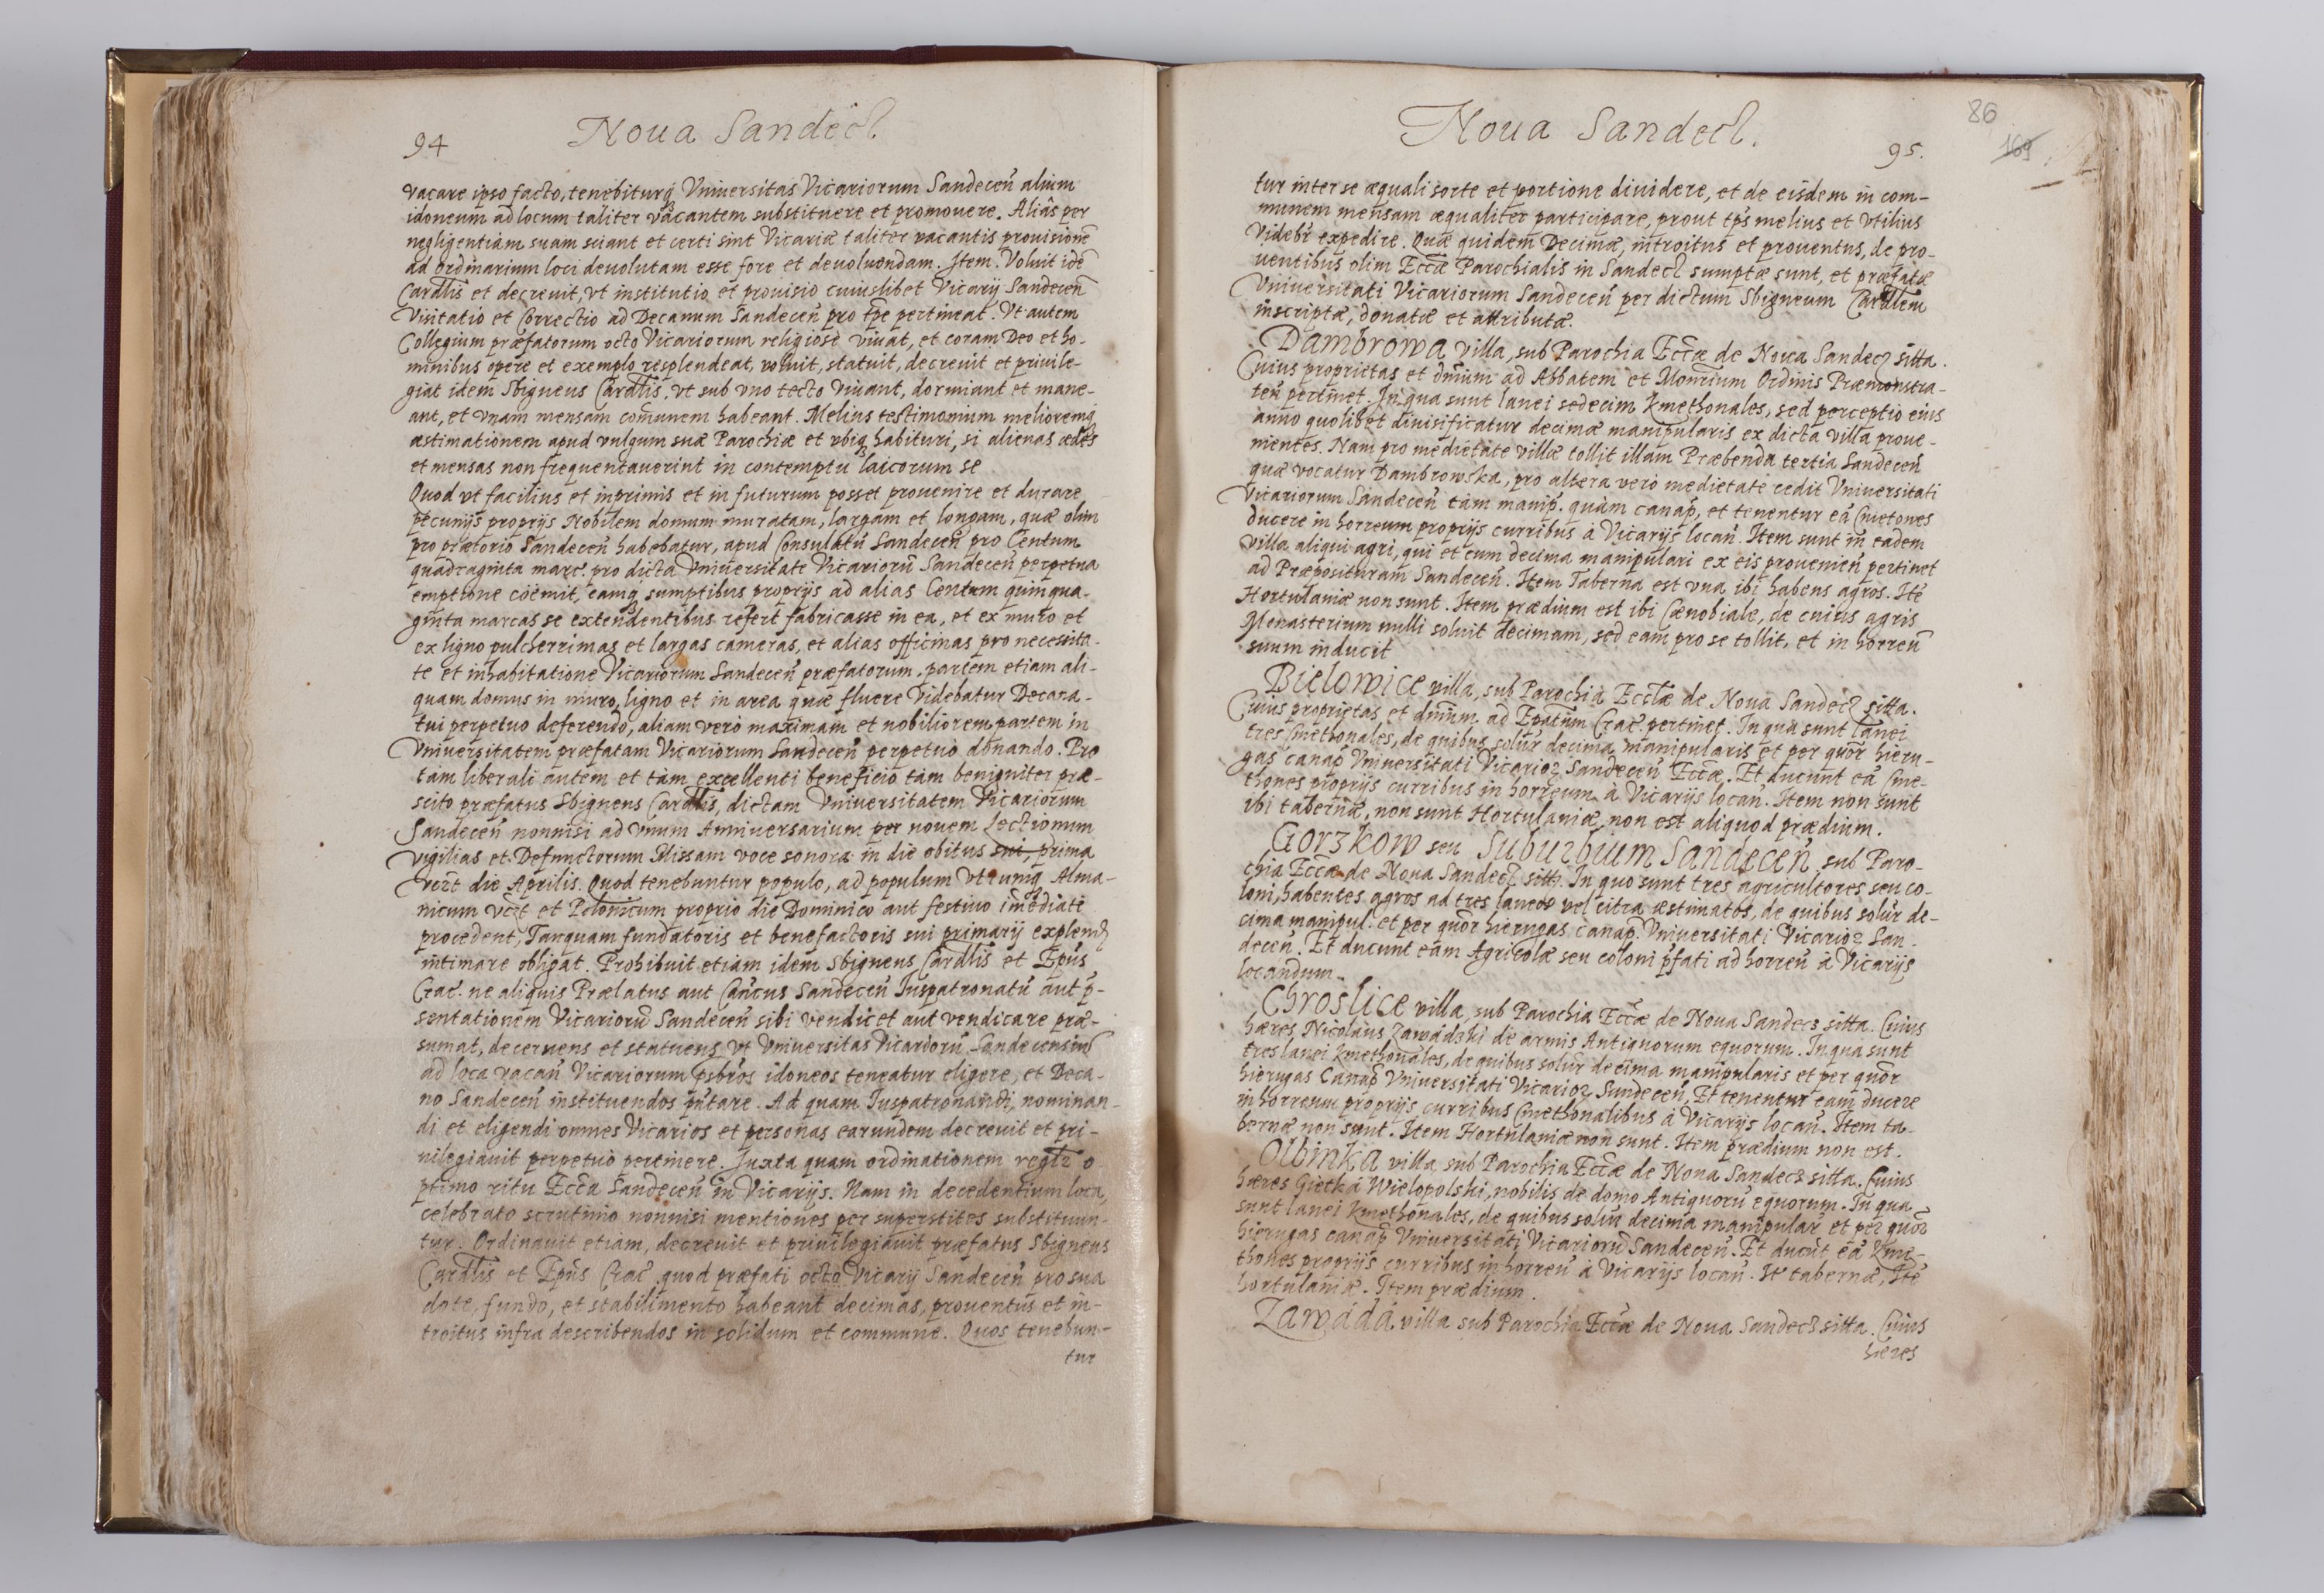 94
Noua Sandecz
vacare ipso facto, tenebiturq Vniuersitas Vicariorum Sandeceñ alium
idoneum ad locum taliter vacantem substituere et promouere. Aliâs per
negligentiam suam sciant et certi sint Vicariæ taliter vacantis prouisionẽ
ad ordinarium loci deuolutam esse fore et deuoluendam. Item. Voluit idẽ
Cardlis et decreuit, vt institutio et prouisio cuiuslibet Vicarij Sandeceñ
Visitatio et Correctio ad Decanum Sandeceñ pro tpe pertineat. Vt autem
Collegium præfatorum octo Vicariorum religiosè viuat, et coram Deo et ho-
minibus opere et exemplo resplendeat, voluit, statuit, decreuit et priuile-
giat idem Sbigneus Cardlis, vt sub vno tecto viuant, dormiant et mane-
ant, et vnam mensam com̃unem habeant. Melius testimonium melioremq
æstimationem apud vulgum suæ Parochiæ et vbiq habituri, si alienas ædes
et mensas non frequentauerint in contemptu laicorum se
Quod vt facilius et inprimis et in futurum posset prouenire et durare
pecunijs proprijs Nobilem domum muratam, largam et longam, quæ olim
pro prætorio Sandeceñ habebatur, apud Consulatũ Sandeceñ pro Centum
quadraginta marc. pro dicta Vniuersitate Vicariorũ Sandeceñ perpetua
emptione cöemit, eamq sumptibus proprijs ad alias Centum quinqua-
ginta marcas se extendentibus refert fabricasse in ea, et ex muro et
ex ligno pulcherrimas et largas cameras, et alias officinas pro necessita-
te et inhabitatione Vicariorum Sandeceñ præfatorum, partem etiam ali-
quam domus in muro, ligno et in area quæ fluere videbatur Decana-
tui perpetuo deferendo, aliam verò maximam et nobiliorem partem in
Vniuersitatem præfatam Vicariorum Sandeceñ perpetuò donando. Pro
tàm liberali autem et tàm excellenti beneficio tàm benigniter præ-
scito præfatus Sbigneus Cardlis, dictam Vniuersitatem Vicariorum
Sandeceñ nonnisi ad vnum Anniuersarium per nouem Lectionum
vigilias et Defunctorum Missam voce sonora in die obitus sui, prima
vczt die Aprilis. Quod tenebuntur populo, ad populum vtrumq Alma-
nicum vczt et Polonicum proprio die Dominico aut festiuo im̃ediatè
procedent, Tanquam fundatoris et benefactoris sui primarij explend
intimare obligat. Prohibuit etiam idem Sbigneus Cardlis et Epũs
Crac. ne aliquis Prælatus aut Cañcus Sandeceñ Iuspatronatũ aut p-
sentationem Vicariorũ Sandeceñ sibi vendicet aut vendicare præ-
sumat, decernens et statuens, vt Vniuersitas Vicariorũ Sandecensiũ
ad loca vacañ Vicariorum psbros idoneos teneatur eligere, et Deca-
no Sandeceñ instituendos pñtare. Ad quam Iuspatronandi, nominan-
di et eligendi omnes Vicarios et personas earundem decreuit et pri-
uilegiauit perpetuò pertinere. Juxta quam ordinationem regitr o
ptimo ritu Ecca Sandeceñ in Vicarijs. Nam in decedentium loca,
celebrato scrutinio nonnisi mentiones per superstites substituun-
tur. Ordinauit etiam, decreuit et priuilegiauit præfatus Sbigneus
Cardlis et Epũs Crac. quod præfati octo Vicarij Sandeceñ pro sua
dote, fundo, et stabilimento habeant decimas, prouentus et in-
troitus infra describendos in solidum et commune. Quos tenebun-
tur
Noua Sandecz.
95.
86
169
tur inter se æquali sorte et portione diuidere, et de eisdem in com-
munem mensam æqualiter participare, prout tps melius et vtilius
videbr expedire. Quæ quidem Decimæ, introitus et prouentus, de pro-
uentibus olim Eccæ Parochialis in Sandecz sumptæ sunt, et præfatæ
Vniuersitati Vicariorum Sandeceñ per dictum Sbigneum Cardlem
inscriptæ, donatæ et attributæ.
Dambrowa villa, sub Parochia Eccæ de Noua Sandecz sitta.
Cuius proprietas et dniũm ad Abbatem et Monrium Ordinis Præmonstra-
teñ pertinet. In qua sunt lanei sedecim kmethonales, sed perceptio eius
anno quolibet diuisificatur decimæ manipularis ex dicta villa proue-
nientes. Nam pro medietate villæ tollit illam Præbenda tertia Sandeceñ
quæ vocatur Dambrowska, pro altera verò medietate cedit Vniuersitati
Vicariorum Sandeceñ tàm manip. quàm canap, et tenentur eã Cmetones
ducere in horreum proprijs curribus à Vicarijs locañ. Item sunt in eadem
villa aliqui agri, qui et cum decima manipulari ex eis proueneñ pertinet
ad Præposituram Sandeceñ. Item Taberna est vna ibi habens agros. Itẽ
Hortulaniæ non sunt. Item prædium est ibi Cœnobiale, de cuius agris
Monasterium nulli soluit decimam, sed eam pro se tollit, et in horreũ
suum inducit
Bielowice villa, sub Parochia Ecclæ de Noua Sandecz sitta.
Cuius proprietas et dniũm ad Epatum Crac. pertinet. In qua sunt lanei
tres Cmethonales, de quibus solur decima manipularis et per quor hieru-
gas canap Vniuersitati Vicarior Sandeceñ Eccæ. Et ducunt eã Cme-
thones proprijs curribus in horreum à Vicarijs locañ. Item non sunt
ibi tabernæ, non sunt Hortulaniæ, non est aliquod prædium.
Gorzkow seu Suburbium Sandeceñ, sub Paro-
chia Eccæ de Noua Sandecz sitt. In quo sunt tres agricultores seu co-
loni, habentes agros ad tres laneos vel citra æstimatos, de quibus solur de-
cima manipul. et per quor hierugas canap. Vniuersitati Vicarior San-
deceñ. Et ducunt eam Agricolæ seu coloni pfati ad horreũ à Vicarijs
locandum.
Chroslice villa, sub Parochia Eccæ de Noua Sandecz sitta. Cuius
hæres Nicolaus Zawadski de armis Antiquorum equorum. In qua sunt
tres lanei kmethonales, de quibus solur decima manipularis et per quor
hierugas Canap Vniuersitati Vicarior Sandeceñ. Et tenentur eam ducere
in horreum proprijs curribus Cmethonalibus à Vicarijs locañ. Item ta-
bernæ non sunt. Item Hortulaniæ non sunt. Item prædium non est.
Olbinka villa, sub Parochia Eccæ de Noua Sandecz sitta. Cuius
hæres Gietka Wielopolski, nobilis de domo Antiquorũ equorum. In qua
sunt lanei kmethonales, de quibus solur decima manipular et per quor
hierugas canap Vniuersitati Vicariorũ Sandeceñ. Et ducũt eã kme-
thones proprijs curribus in horreũ à Vicarijs locañ. It tabernæ, Itẽ
hortulaniæ. Item prædium.
Zawáda villa sub Parochia Eccæ de Noua Sandecz sitta. Cuius
hæres